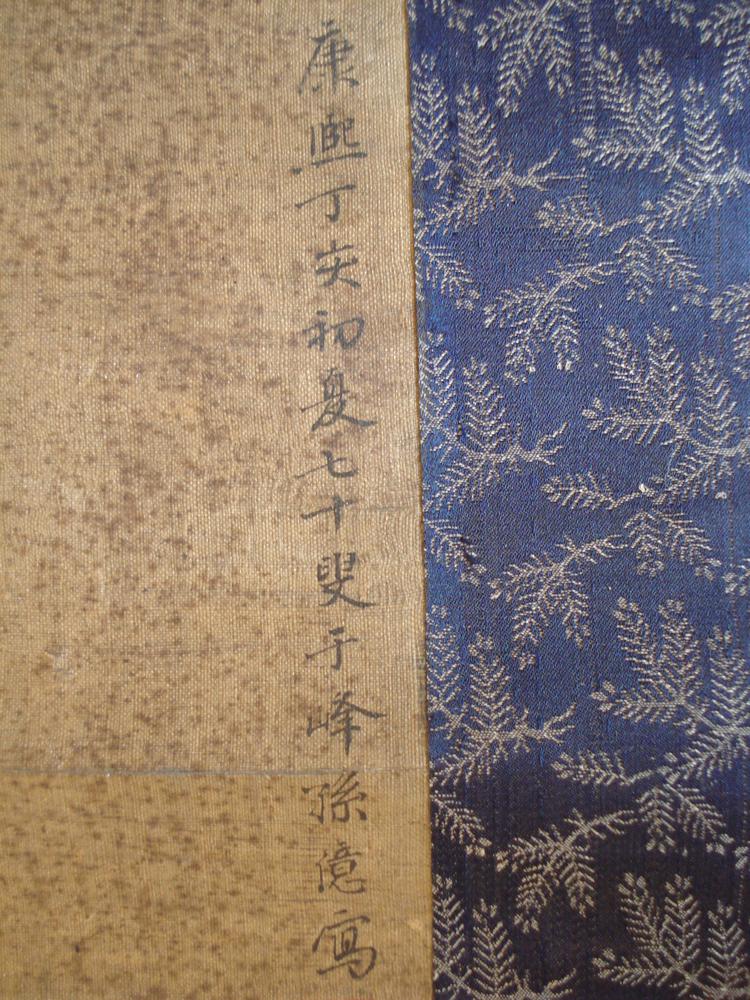 康熙丁亥初夏七十叟于峰孫億寫